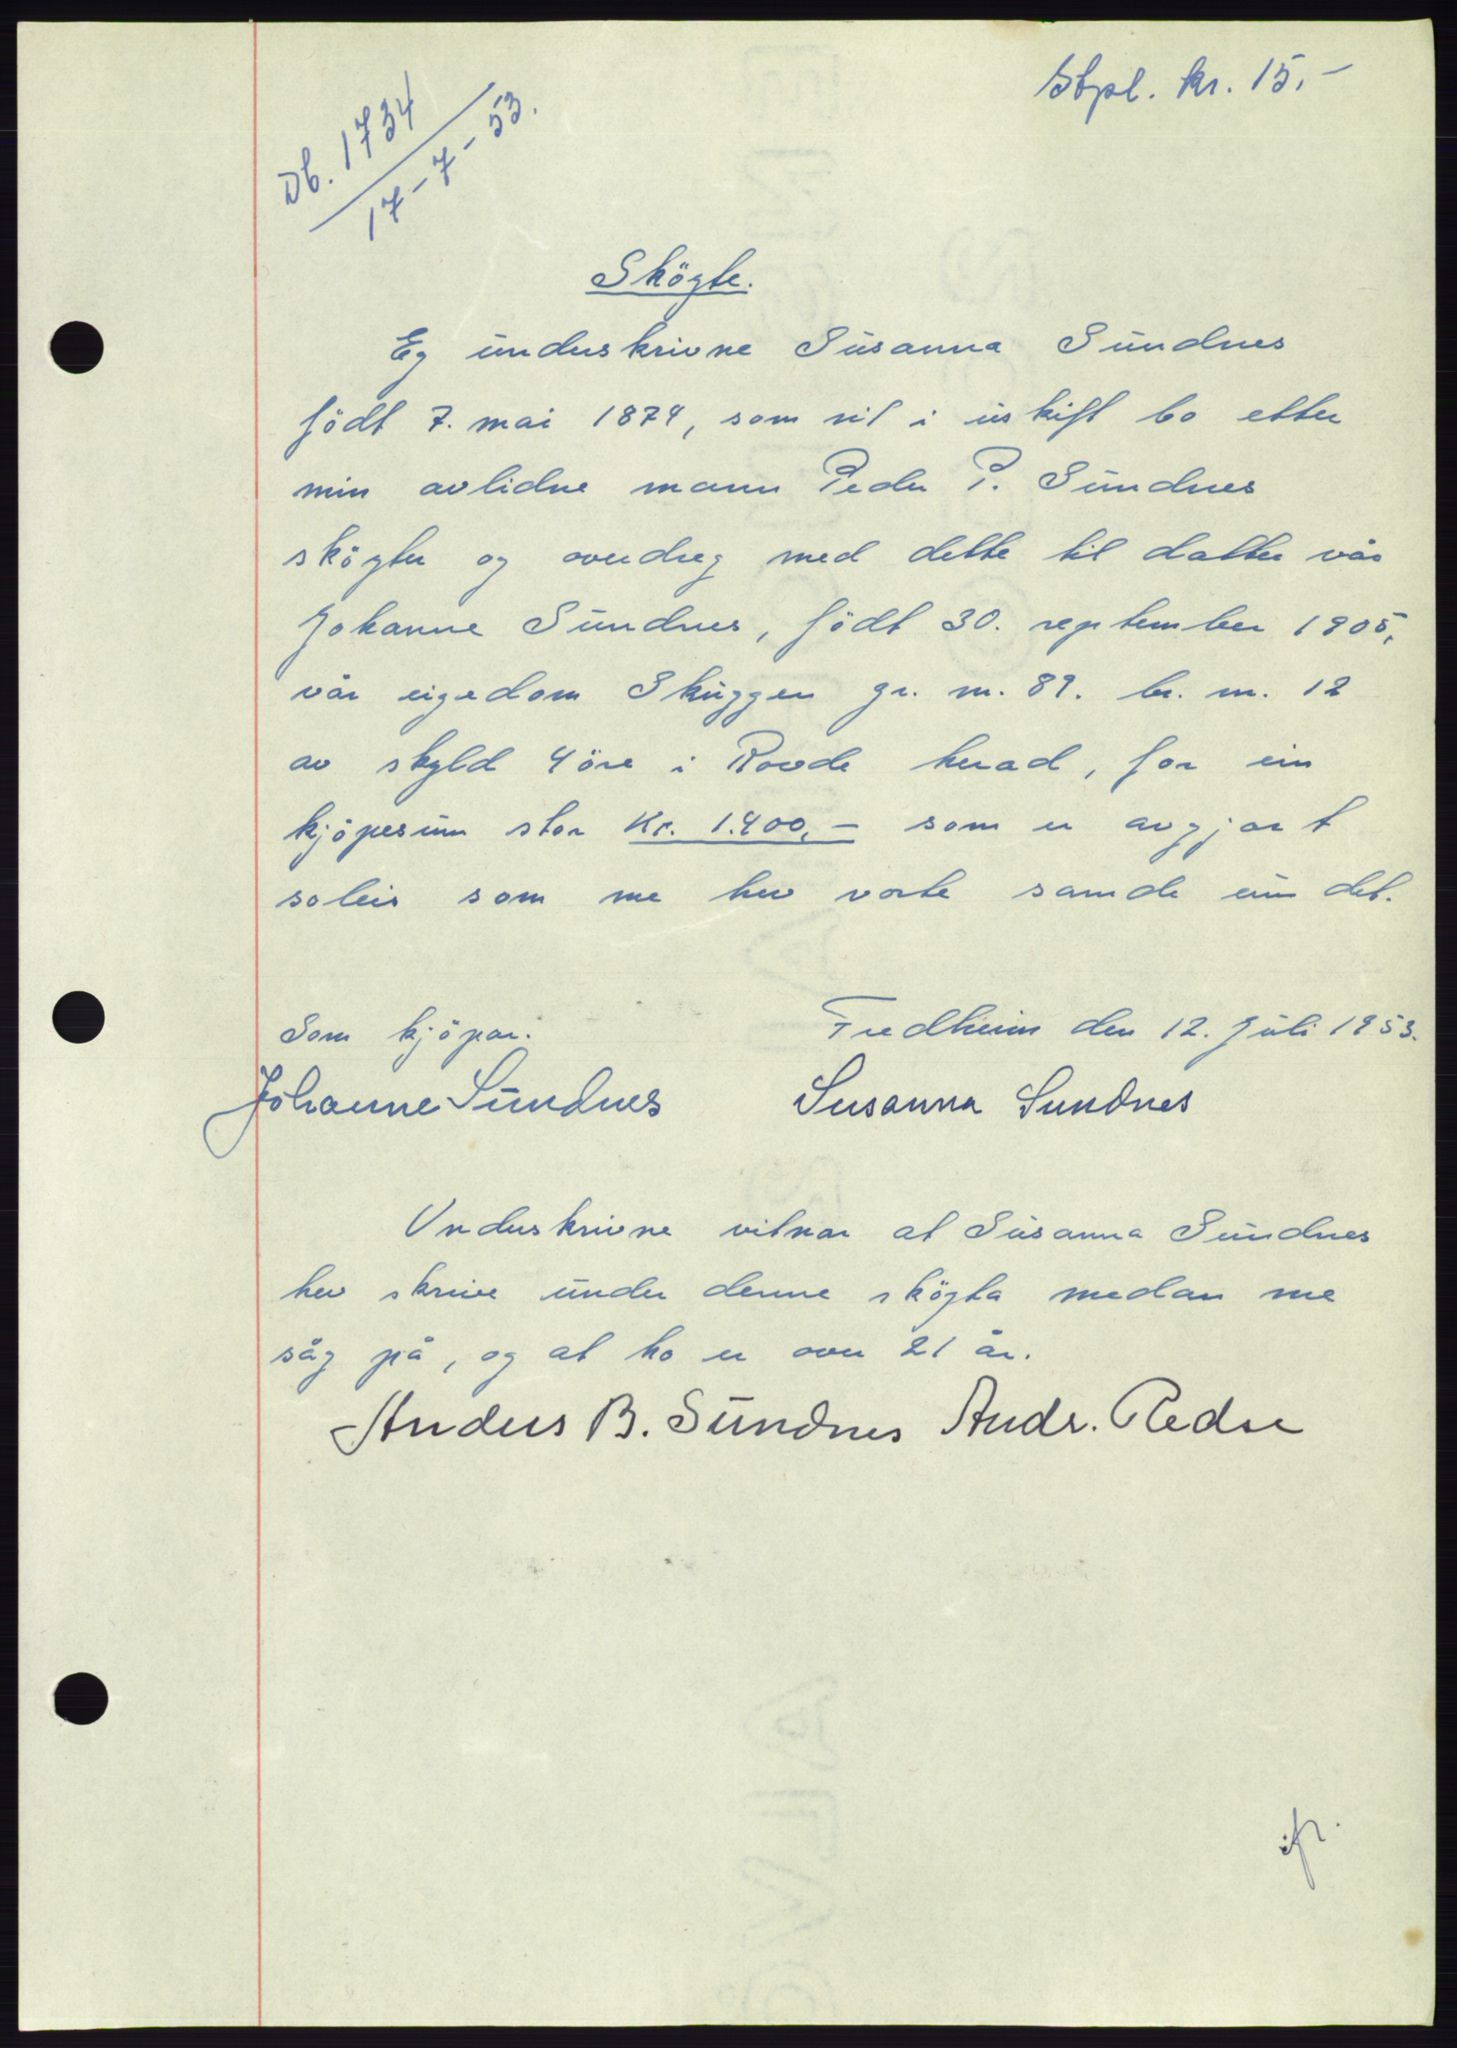 Stpl. kr. 15.-
Db. 1734
17-7-53.
Sköyte.
Eg underskrivne Susanna Sundnes
födt 7. mai 1874, som sit i uskift bo etter
min avlidne mann Peder P. Sundnes
sköyter og overdreg med dette til datter vår
Johanne Sundnes, födt 30. september 1905,
vår eigedom Skuggen gr. nr. 89. br. nr. 12
av skyld 4 öre i Rovde herad, for ein
kjöpesum stor kr. 1.400,- som er avgjort
soleis som me hev vorte samde um det.
Fredheim den 12. juli 1953.
Som kjöpar.
Johanne Sundnes Susanna Sundnes
Underskrivne vitnar at Susanna Sundnes
hev skrive under denne sköyta medan me
såg på, og at ho er over 21 år.
Anders B. Sundnes Andr. Redse